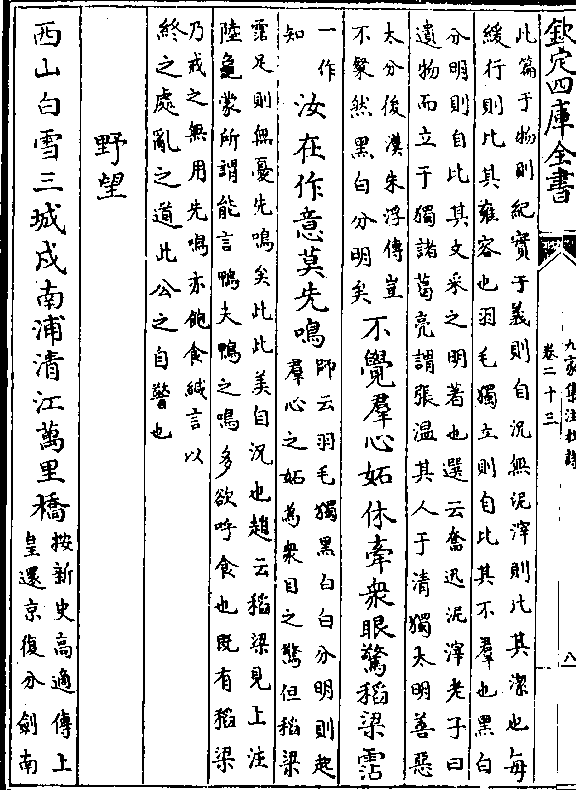 欽定四庫全書
九家集注杜詩
卷二十三
八
此篇于物則紀實于義則自況無泥滓則比其潔也每
緩行則比其雍容也羽毛獨立則自比其不羣也黑白
分明則自比其文采之明著也選云奮迅泥滓老子曰
遺物而立于獨諸葛亮謂張溫其人于清獨太明善惡
太分後漢朱浮傳豈
不粲然黑白分明矣
不覺羣心妬休牽衆眼驚稻粱霑
一作
知
汝在作意莫先鳴
師云羽毛獨黑白白分明則起
羣心之妬為衆目之驚但稻粱
霑足則無憂先鳴矣此比美自況也趙云稻粱見上注
陸龜蒙所謂能言鴨夫鴨之鳴多欲呼食也既有稻粱
乃戒之無用先鳴亦飽食緘言以
終之處亂之道此公之自警也
野望
西山白雪三城戍南浦清江萬里橋
按新史高適傳上
皇還京復分劍南